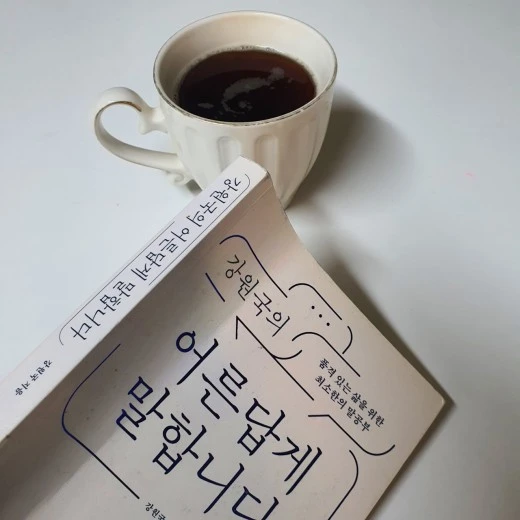 강원국의 어른답게 말합니다
강원국 지음
강원국의
품격 있는 삶을 위한
최소한의 말공부
어른답게
말합니다
강원국